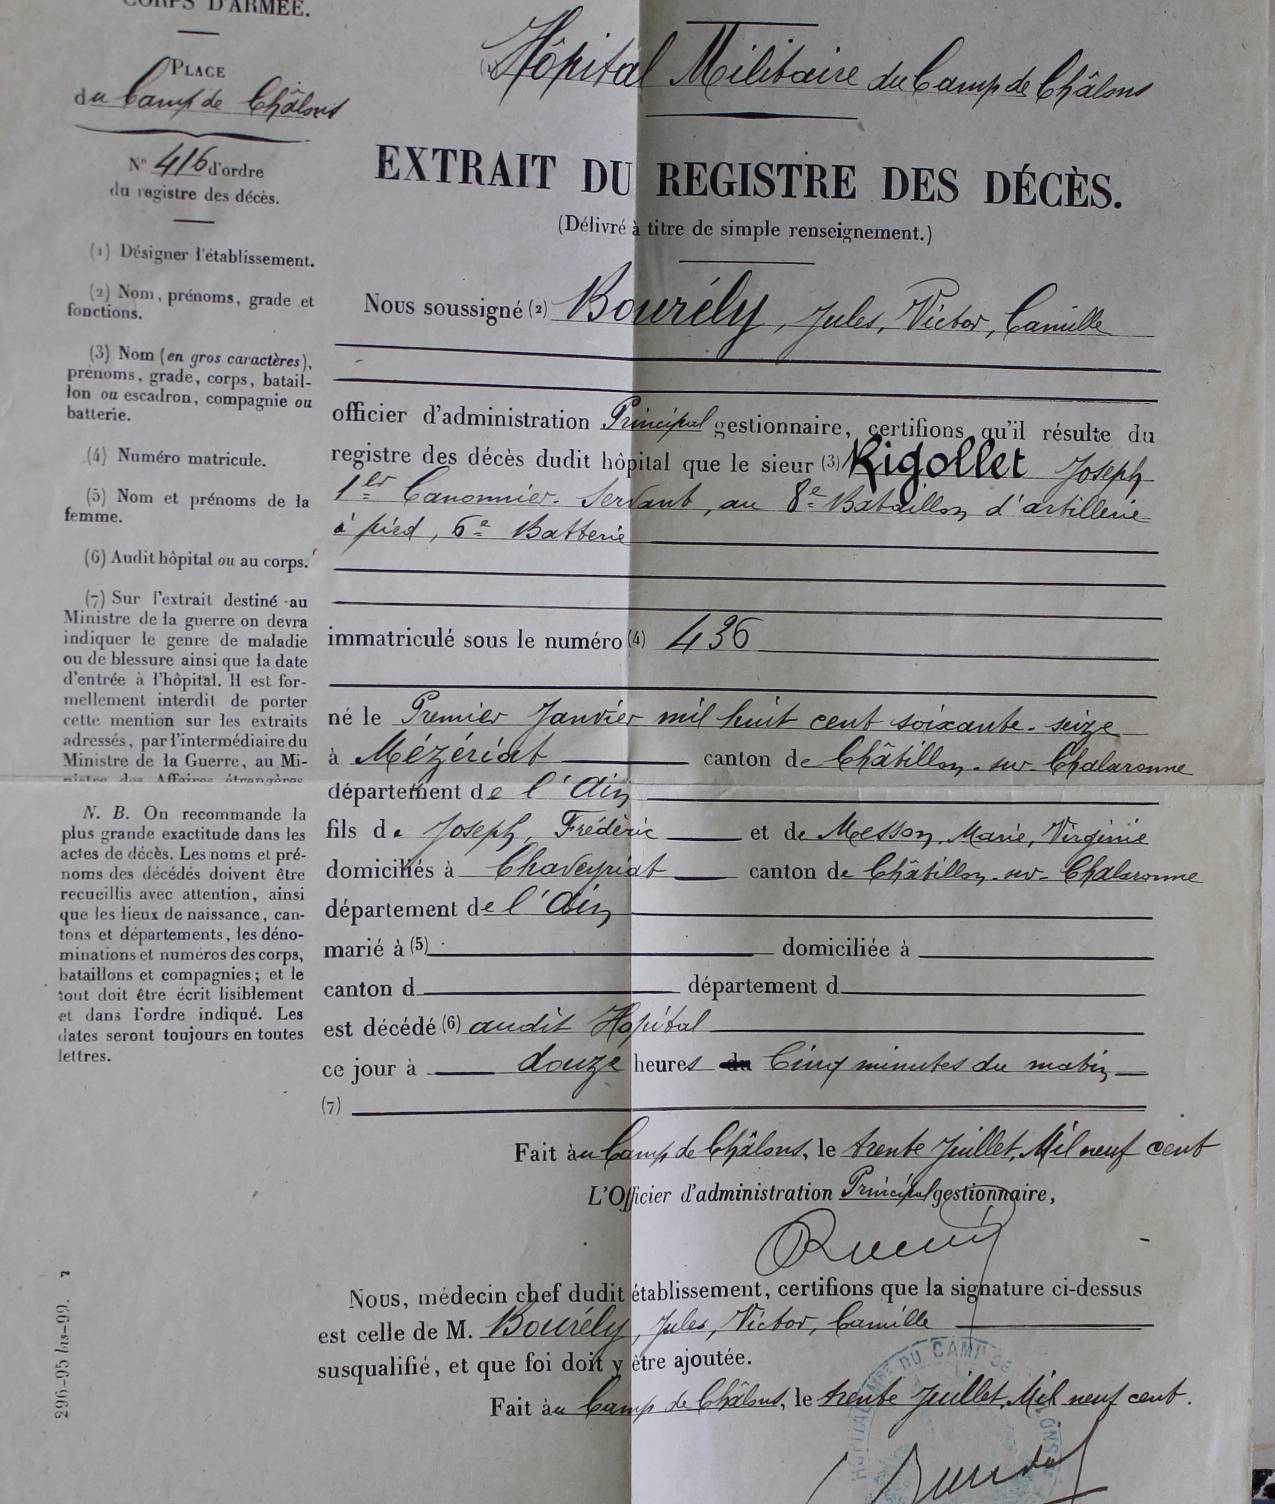 CORPS D'ARMÉE.
PLACE
du Camp de Châlons
N° 416 d'ordre
du registre des décès.
(1) Désigner l'établissement.
(2) Nom, prénoms, grade et
fonctions.
(3) Nom (en gros caractères),
prénoms, grade, corps, batail-
lon ou escadron, compagnie ou
batterie.
(4) Numéro matricule.
(5) Nom et prénoms de la
femme.
(6) Audit hôpital ou au corps.
(7) Sur l'extrait destiné au
Ministre de la guerre on devra
indiquer le genre de maladie
ou de blessure ainsi que la date
d'entrée à l'hôpital. Il est for-
mellement interdit de porter
cette mention sur les extraits
adressés, par l'intermédiaire du
Ministre de la Guerre, au Mi-
nistre des Affaires étrangères
N. B. On recommande la
plus grande exactitude dans les
actes de décès. Les noms et pré-
noms des décédés doivent être
recueillis avec attention, ainsi
que les lieux de naissance, can-
tons et départements, les déno-
minations et numéros des corps,
bataillons et compagnies; et le
tout doit être écrit lisiblement
et dans l'ordre indiqué. Les
dates seront toujours en toutes
lettres.
296-95 bis-99.
Hôpital Militaire du Camp de Châlons
EXTRAIT DU REGISTRE DES DÉCÈS.
(Délivré à titre de simple renseignement.)
Nous soussigné (2) Bourély, Jules, Victor, Camille
officier d'administration Principal gestionnaire, certifions qu'il résulte du
registre des décès dudit hôpital que le sieur (3) Rigollet Joseph
1er Canonnier-Servant, au 8e Bataillon d'artillerie
à pied, 6e Batterie
immatriculé sous le numéro (4) 436
né le Premier Janvier mil huit cent soixante-seize
à Mézériat canton de Châtillon-sur-Chalaronne
département de l'Ain
fils de Joseph, Frédéric et de Messon, Marie, Virginie
domiciliés à Chaveyriat canton de Châtillon-sur-Chalaronne
département de l'Ain
marié à (5) domiciliée à
canton d département d
est décédé (6) audit Hôpital
ce jour à douze heures du Cinq minutes du matin
(7)
Fait au Camp de Châlons, le trente Juillet, Mil neuf cent
L'Officier d'administration Principal gestionnaire,
Nous, médecin chef dudit établissement, certifions que la signature ci-dessus
est celle de M. Bourély, Jules, Victor, Camille
susqualifié, et que foi doit y être ajoutée.
Fait au Camp de Châlons, le trente Juillet, Mil neuf cent.